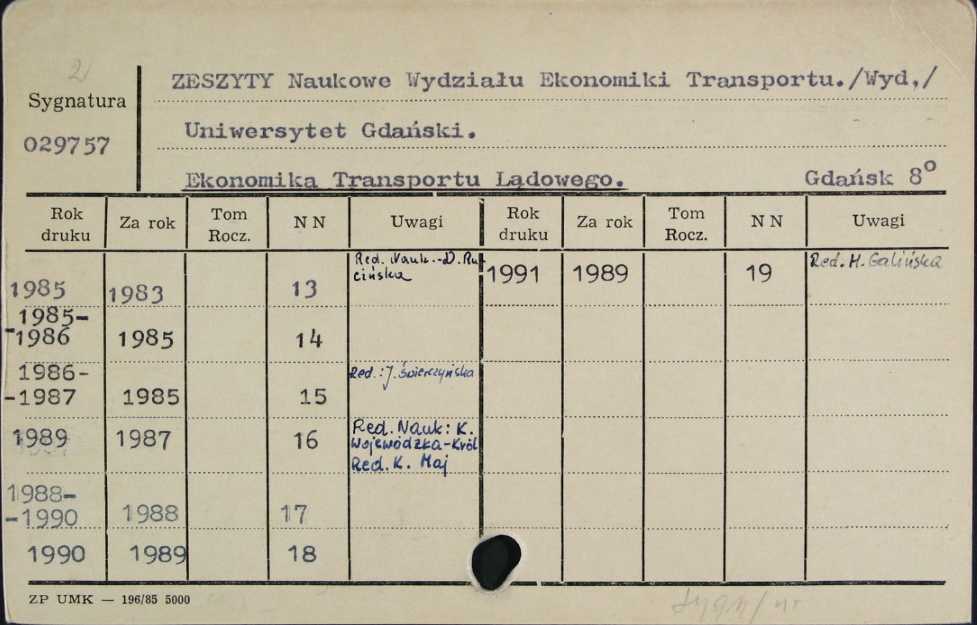 2
ZESZYTY Naukowe Wydziału Ekonomiki Transportu./Wyd,/
Sygnatura
029757
Uniwersytet Gdański.
Ekonomika Transportu Lądowego. Gdańsk 8°
Rok druku Za rok Tom Rocz. N N Uwagi Rok druku Za rok Tom Rocz. N N Uwagi
1985 1983 13 Red. Nauk.-D. Ru-
cińska
1991 1989 19 Red. H. Galińska
1985-
-1986 1985 14
1986-
-1987 1985 15 Red.: J. Świerczyńska
1989 1987 16 Red. Nauk: K.
Wojewódzka-Król
Red. K. Maj
1988-
-1990 1988 17
1990 1989 18
ZP UMK — 196/85 5000